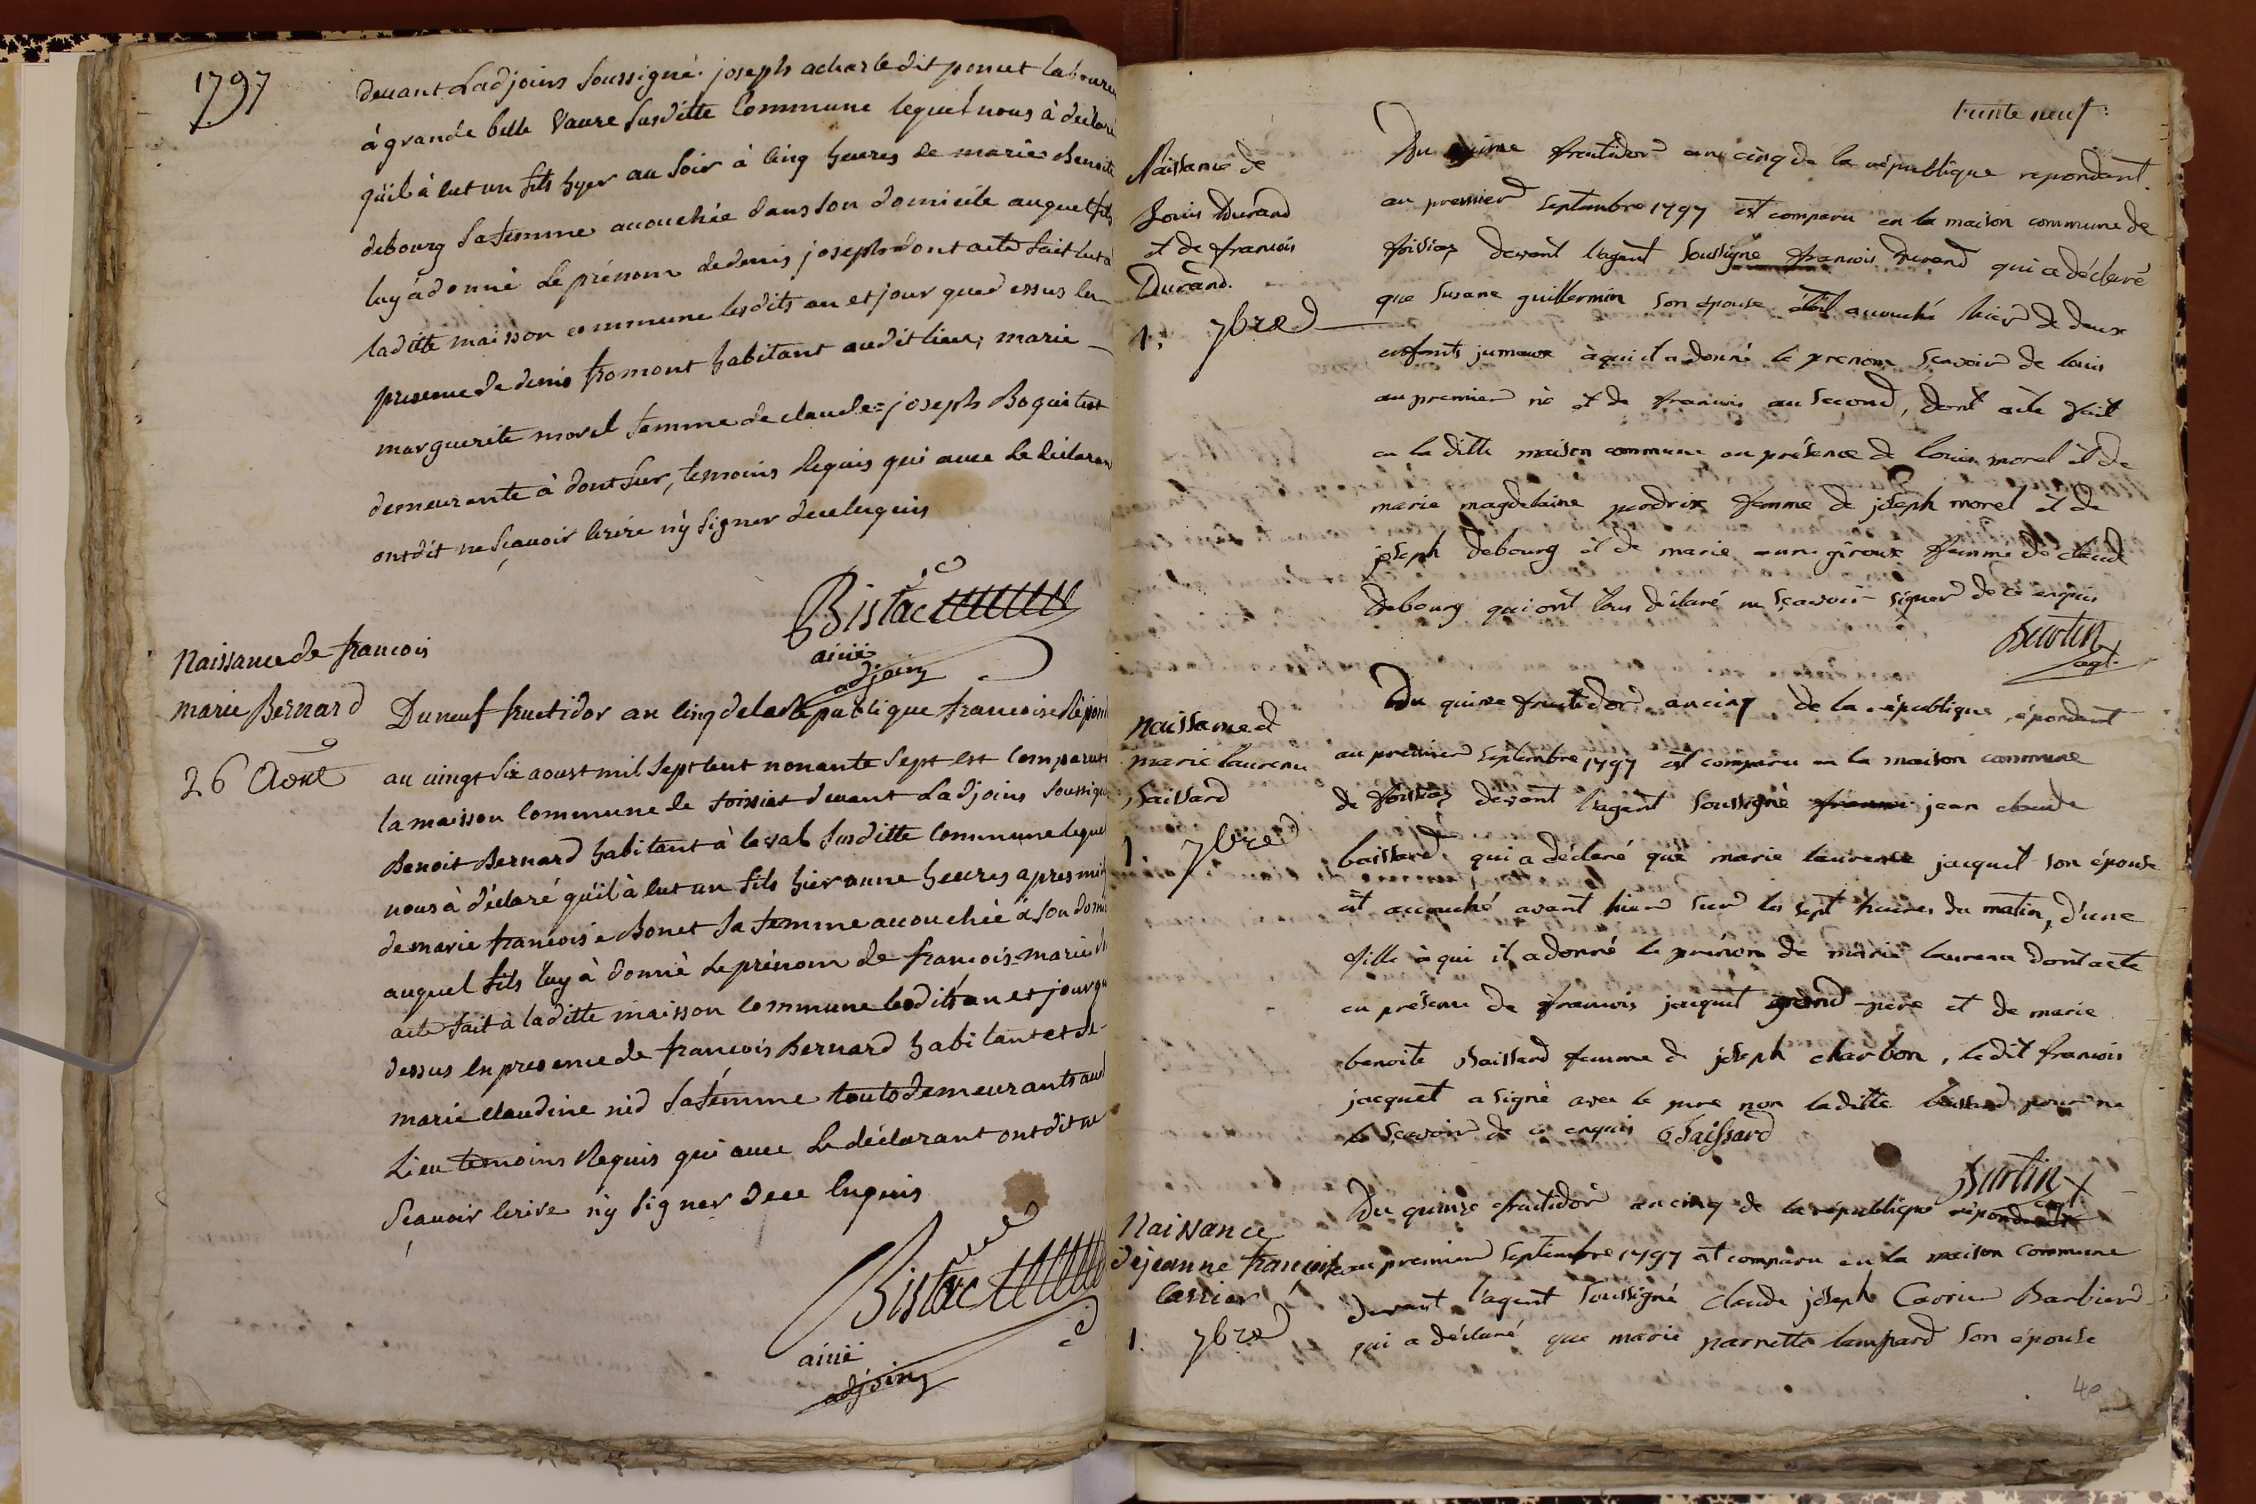 1797
devant Ladjoins Soussigné joseph acharle dit poncet laboure
à grande belle Vaure susditte Commune lequel nous à déclaré
qu'il à eut un fils hyer au soir à cinq heures de marie Benoite
debourg sa femme acouchée dans son domicile auquel fils
luy à donné le prénom de denis joseph dont acte fait en
laditte maisson commune lesdits an et jour que dessus en
presence de denis fromont habitant audit lieu, marie
marguerite morel femme de claude=joseph Boquillet
demeurante à dontsur, temoins Requis qui avec le déclaran
ont dit ne sçavoir écrire n'y signer de ce enquis
Bistac
ainé
adjoin
Naissance de francois
marie Bernard
26 Aout
Du neuf fructidor an cinq de la Republique francoise Répond
au vingt six aoust mil sept cent nonante sept est comparut
la maisson commune de foissiat devant Ladjoins soussigné
Benoit Bernard habitant à leval susditte Commune lequel
nous à déclaré qu'il à eut un fils hier a une heures apres mid
de marie francoise Bonet sa femme acouchée à son domi
auquel fils luy à donné le prénom de francois=marie d
acte fait à laditte maisson commune lesdits an et jour qu
dessus en presence de francois Bernard habitant et de
marie claudine nid sa femme touts demeurants aud
Lieu temoins Requis qui avec le déclarant ont dit ne
sçavoir écrire n'y signer de ce enquis
Bistac
ainé
adjoin
trente neuf
Naissance de
Louis Durand
et de francois
Durand.
1. 7bre
Du quinze fructidor an cinq de la république repondant
au premier septembre 1797 est comparu en la maison commune de
foissiaz devant l'agent soussigné francois durand qui a déclaré
que susane guillermin son épouse étoit acouché hier de deux
enfants jumeaux à qui il a donné le prenom sçavoir de louis
au premier né et de francois au second, dont acte fait
en la ditte maison commune en présence de louis morel et de
marie magdelaine perdrix femme de joseph morel et de
joseph debourg et de marie anne giroux femme de claude
debourg qui ont tous déclaré ne sçavoir signer de ce enquis
Burtin
agt.
naissance d
marie laurence
Baissard
1 7bre
Du quinze fructidor an cinq de la république répondant
au premier septembre 1797 est comparu en la maison commune
de foissiaz devant l'agent soussigné jean claude
baissard qui a déclaré que marie laurence jacquet son épouse
est acouché avant hier sur les sept heures du matin, d'une
fille à qui il a donné le prénom de marie laurence dont acte
en présence de francois jacquet grand-père et de marie
benoite Baissard femme de joseph charbon, ledit francois
jacquet a signé avec le pere non laditte baissard pour ne
le sçavoir de ce enquis Baissard
Burtin
agt.
Naissance
de jeanne francoise
Carrier
1. 7bre
Du quinze fructidor an cinq de la république répondant
au premier septembre 1797 est comparu en la maison commune
devant l'agent soussigné claude joseph Carrier Barbier
qui a déclaré que marie pernette lempard son épouse
40